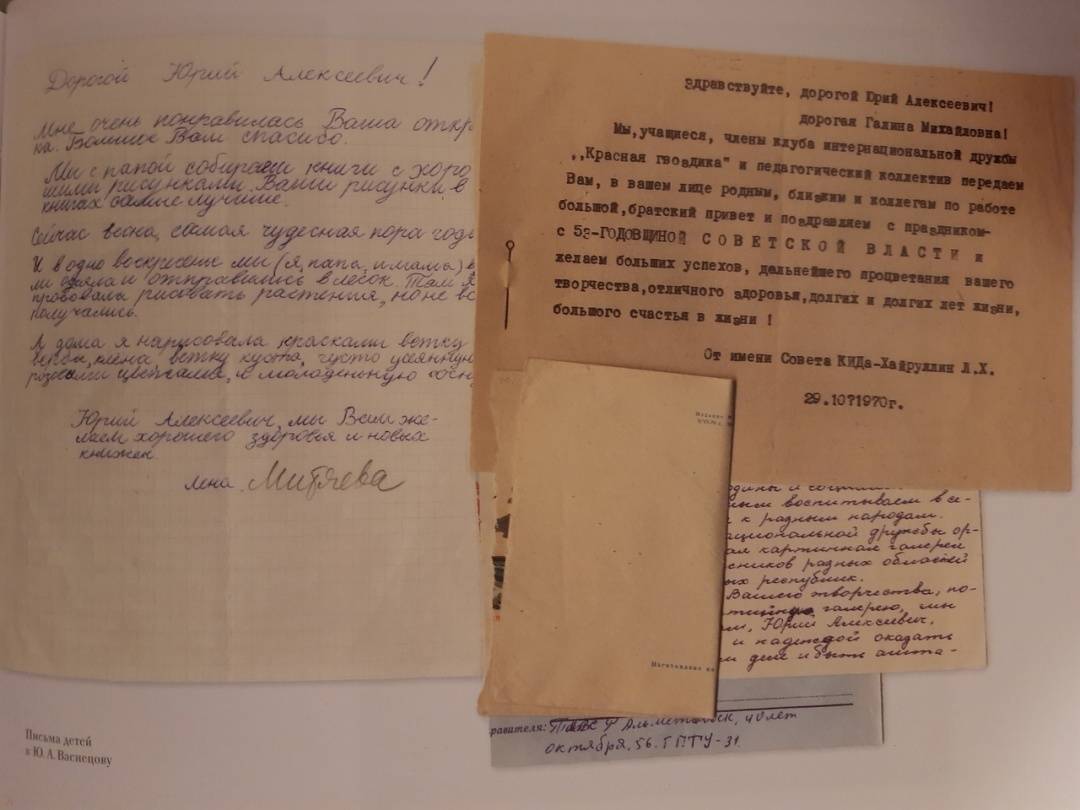 Дорогой Юрий Алексеевич!
Мне очень понравилась Ваша откр
ка. Большое Вам спасибо.
Мы с папой собираем книги с хоро
шими рисунками. Ваши рисунки в
книгах самые лучшие.
Сейчас весна, самая чудесная пора года
И в одно воскресенье мы (я, папа, и мама)
ли одеяла и отправились в лесок. Там я
пробовала рисовать растения, но не вс
получались.
А дома я нарисовала красками ветку
вербы, клёна, ветку куста, густо усеянную
розовыми цветками, и молоденькую сосн
Юрий Алексеевич, мы Вам же-
лаем хорошего здоровья и новых
книжек.
Лена Митяева
Здравствуйте, дорогой Юрий Алексеевич!
дорогая Галина Михайловна!
Мы,учащиеся, члены клуба интернациональной дружбы
,,Красная гвоздика" и педагогический коллектив передаем
Вам, в вашем лице родным, близким и коллегам по работе
большой,братский привет и поздравляем с праздником-
с 53-ГОДОВЩИНОЙ СОВЕТСКОЙ ВЛАСТИ и
желаем больших успехов, дальнейшего процветания вашего
творчества,отличного здоровья,долгих и долгих лет жизни,
большого счастья в жизни !
От имени Совета КИДа-Хайруллин Л.Х.
29.10?1970г.
одины и социали
ным воспитываем в се-
к разным народам.
ациональной дружбы ор-
ая картинная галерея
сников разных областей
ых республик.
Вашего творчества, по-
галерею, мы
ам, Юрий Алексеевич,
и надеждой оказать
м деле и быть
Изготовлено
равителя: Альметьевск, 40 лет
октября, 56. ГПТУ-31
Письма детей
к Ю. А. Васнецову